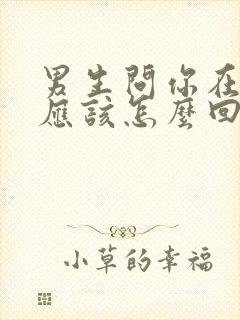 男生問你在
應該怎麼回
小草的幸福